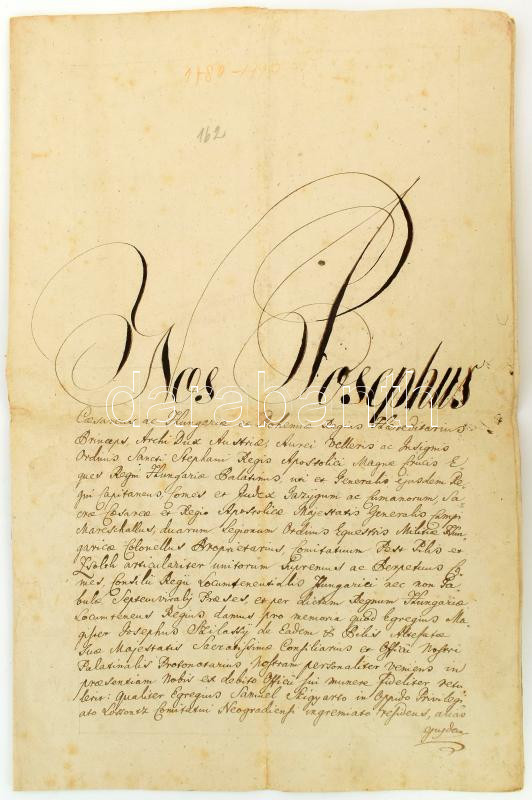 162
Nos Josephus
Cæsareus ac Hungariæ et Bohemiæ Regius Hæreditarius
Princeps, Archi Dux Austriæ, Aurei Velleris ac Insignis
Ordinis Sancti Stephani Regis Apostolici Magnæ Crucis E,
ques Regni Hungariæ Palatinus, uti et Generalis Ejusdem Re,
gni Capitaneus, Comes et Judex Jazygum ac Cumanorum, Sa,
cræ Cæsareæ et Regio Apostolicæ Majestatis Generalis Campi
Mareschallus, duarum Legionum Ordinis Equestris Militiæ Hun,
garicæ Colonellus Proprietarius, Comitatuum Pest Pilis et
Zsolth articulariter unitorum Supremus ac Perpetuus Co,
mes, Consilii Regii Locumtenentialis Hungarici nec non Ta,
bulæ Septemviralis Præses, et per dictum Regnum Hungariæ
Locumtenens Regius damus pro memoria quod Egregius Ma,
gister Josephus Szilassy de Eadem et Pilis Altefatæ
Suæ Majestatis Sacratissimæ Consiliarius et Officii Nostri
Palatinalis Protonotarius, Nostram personaliter veniens in
præsentiam Nobis ex debito Officii sui munere fideliter retu,
lerit: Qualiter Egregius Samuel Szigyarto in Oppido Privilegi,
ato Lossontz Comitatui Neogradiensi ingremiato residens, alias
ejusdem
darabanth